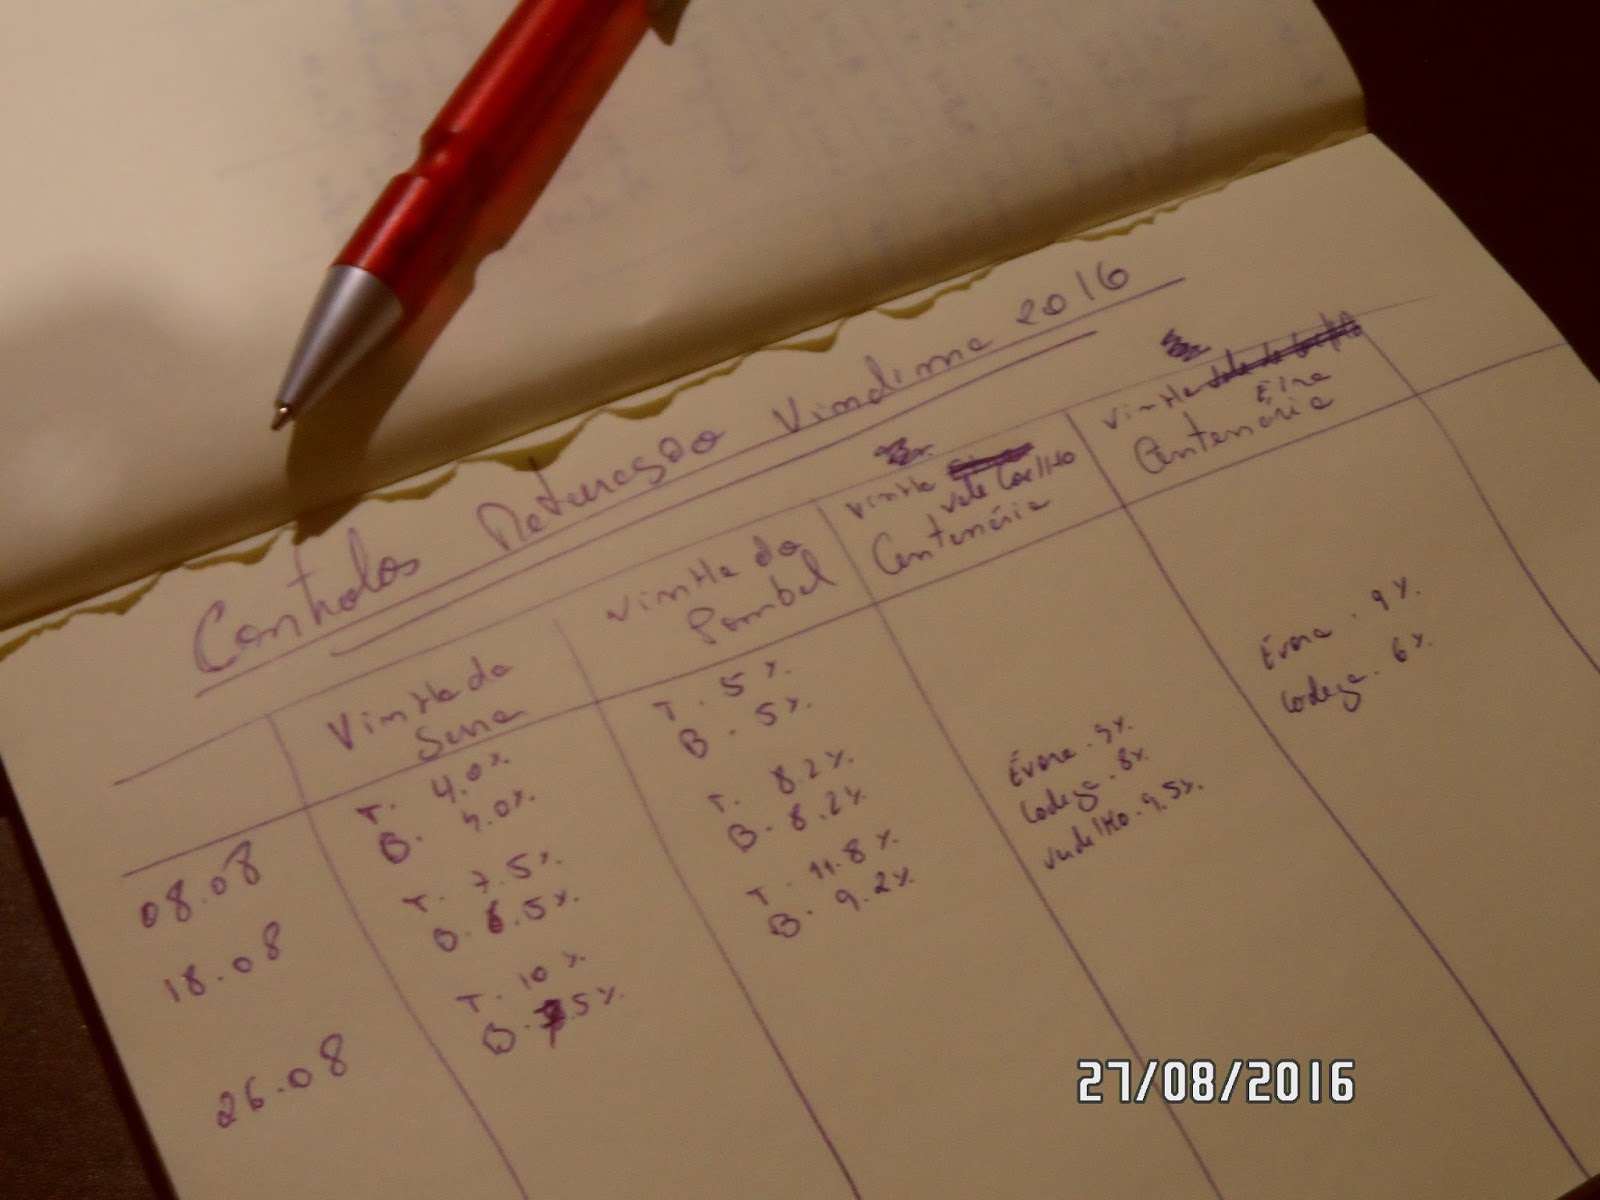 Controlos Maturação Vindima 2016
Vinha da Serra
Vinha do Pombal
Vinha Vale Coelho Centenária
Vinha Eira Centenária
08.08
T. 4.0%
B. 4.0%
T. 5%
B. 5%
18.08
T. 7.5%
B. 6.5%
T. 8.2%
B. 8.2%
26.08
T. 10%
B. .5%
T. 11.8%
B. 9.2%
Évora. 9%
Codega. 8%
Verdelho. 9.5%
Évora. 9%
Codega. 6%
27/08/2016